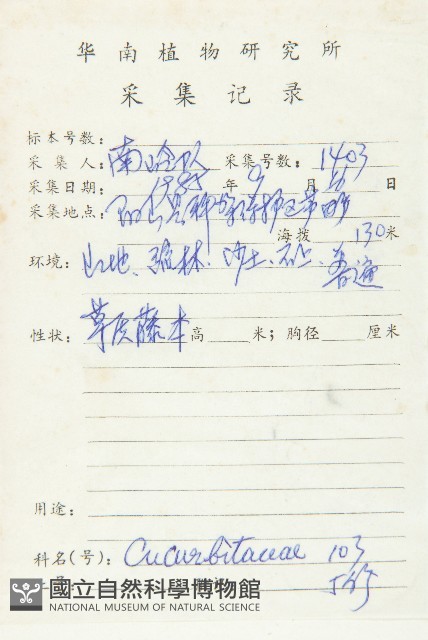 华南植物研究所
采集记录
标本号数:
采集人: 南岭队 采集号数: 1403
采集日期: 1985 年 9 月 日
采集地点: 阳山县秤架
海拨 130 米
环境: 山地、疏林、沙土、石上、普遍
性状: 草质藤本 高 米; 胸径 厘米
用途:
科名(号): Cucurbitaceae 103
國立自然科學博物館
NATIONAL MUSEUM OF NATURAL SCIENCE